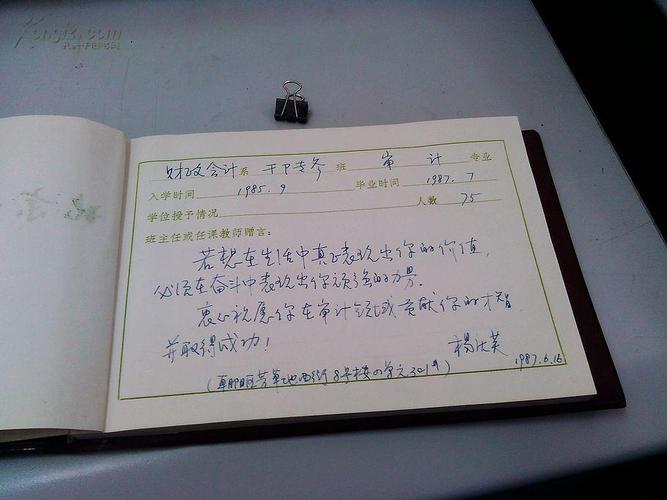 Kongfz.com
孔夫子旧书网
财政会计系 干部专修班 审计专业
入学时间 1985.9 毕业时间 1987.7
学位授予情况 人数 75
班主任或任课教师赠言：
若想在生活中真正表现出你的价值，
必须在奋斗中表现出你顽强的力量。
衷心祝愿你在审计领域贡献你的才智
并取得成功！
杨 英 1987.6.16
(草地西街8号楼4单元301号)